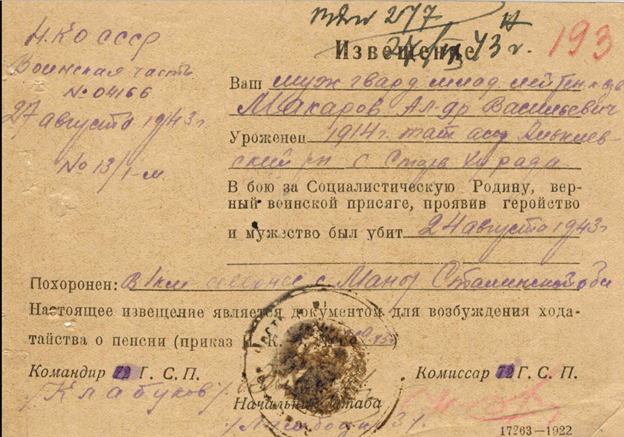 193
Н.К.О СССР
Воинская часть
№ 04166
27 августа 1943 г.
№ 13/1-м
Извещение
Ваш муж гвард. млад. лейтенант
Макаров Ал-др Васильевич
Уроженец 1914 г. тат асср
с.
В бою за Социалистическую Родину, вер-
ный воинской присяге, проявив геройство
и мужество был убит 24 августа 1943 г
Похоронен: в 1 км севернее с. Сталинской
Настоящее извещение является документом для возбуждения хода-
тайства о пенсии (приказ Н. К.
Командир 72 Г. С. П. Комиссар 72 Г. С. П.
/Клабуков/
Начальник штаба
17263—1922